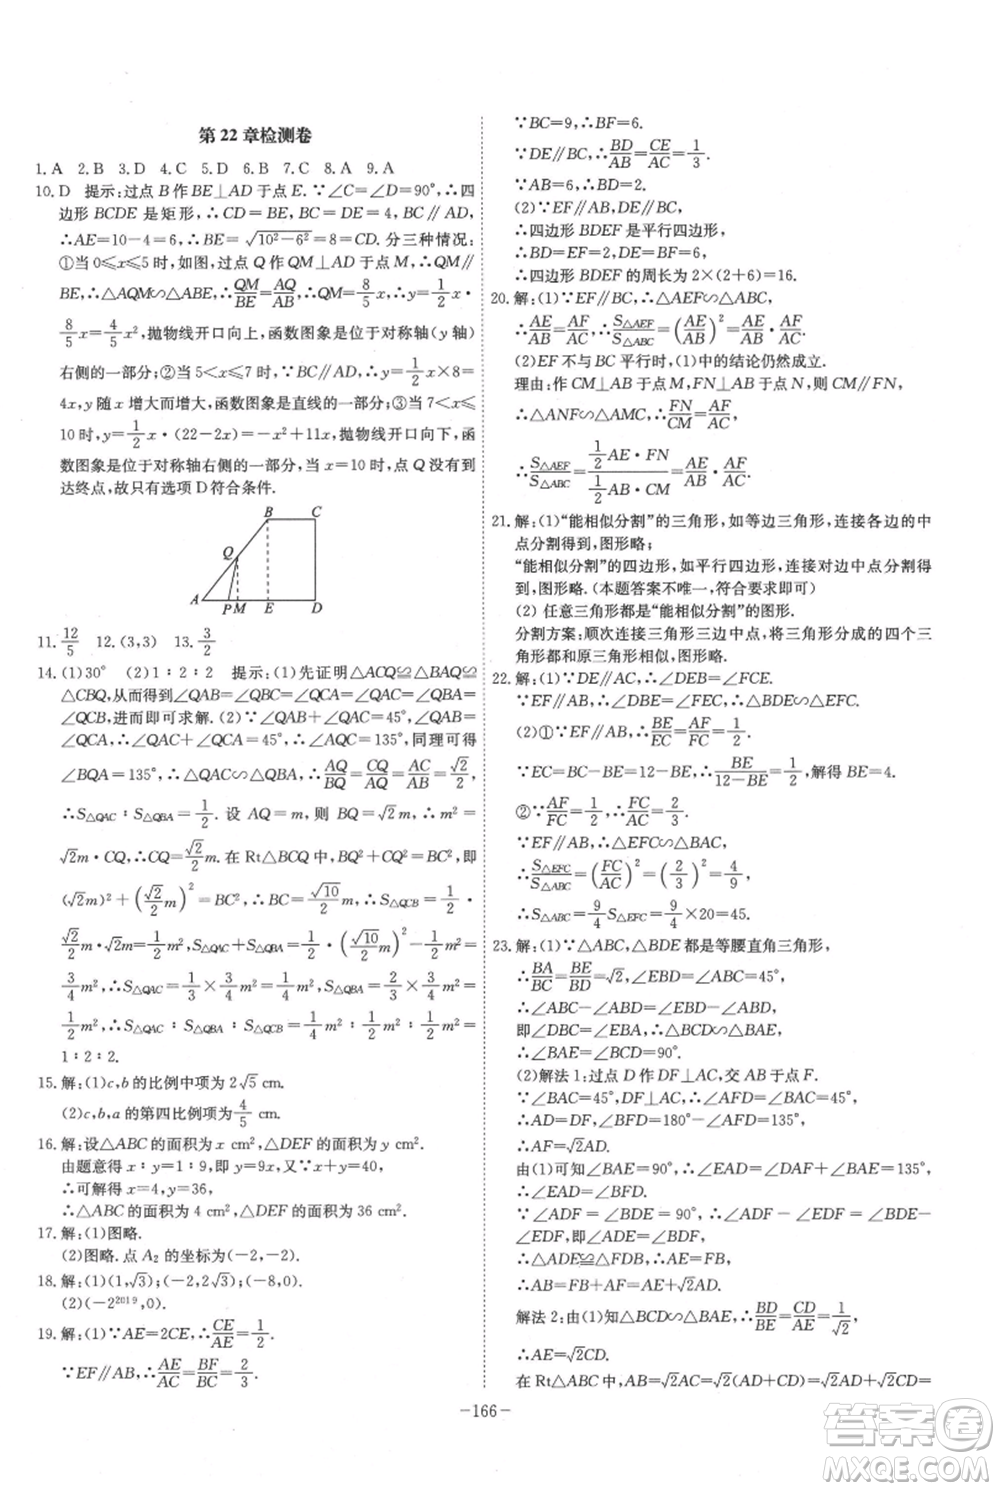 第 22 章检测卷
1. A  2. B  3. D  4. C  5. D  6. B  7. C  8. A  9. A
10. D  提示:过点 B 作 BE⊥AD 于点 E. ∵∠C=∠D=90°, ∴四
边形 BCDE 是矩形, ∴CD=BE, BC=DE=4, BC∥AD,
∴AE=10-4=6, ∴BE=√(10²-6²)=8=CD. 分三种情况:
①当 0≤x≤5 时,如图,过点 Q 作 QM⊥AD 于点 M, ∴QM∥
BE, ∴△AQM∽△ABE, ∴QM/BE=AQ/AB, ∴QM=8/5x, ∴y=1/2x·
8/5x=4/5x²,抛物线开口向上,函数图象是位于对称轴(y 轴)
右侧的一部分;②当 5<x≤7 时, ∵BC∥AD, ∴y=1/2x×8=
4x, y 随 x 增大而增大,函数图象是直线的一部分;③当 7<x≤
10 时, y=1/2x·(22-2x)=-x²+11x,抛物线开口向下,函
数图象是位于对称轴右侧的一部分;当 x=10 时,点 Q 没有到
达终点,故只有选项 D 符合条件.
B C
Q
A P M E D
11. 12/5  12. (3,3)  13. 3/2
14. (1)30°  (2)1∶2∶2  提示:(1)先证明△ACQ≌△BAQ≌
△CBQ,从而得到∠QAB=∠QBC=∠QCA,∠QAC=∠QBA=
∠QCB,进而即可求解. (2)∵∠QAB+∠QAC=45°,∠QAB=
∠QCA, ∴∠QAC+∠QCA=45°, ∴∠AQC=135°,同理可得
∠BQA=135°, ∴△QAC∽△QBA, ∴AQ/BQ=CQ/AQ=AC/AB=√2/2,
∴S△QAC∶S△QBA=1/2. 设 AQ=m, 则 BQ=√2m, ∴m²=
√2m·CQ, ∴CQ=√2/2m. 在 Rt△BCQ 中, BQ²+CQ²=BC²,即
(√2m)²+(√2/2m)²=BC², ∴BC=√10/2m. ∵S△QCB=1/2×
√2/2m·√2m=1/2m², S△QAC+S△QBA=1/2·(√10/2m)²-1/2m²=
3/4m², ∴S△QAC=1/3×3/4m²=1/4m², ∴S△QBA=3/4m²-1/4m²=
1/2m², ∴S△QAC∶S△QBA∶S△QCB=1/4m²∶1/2m²∶1/2m²=
1∶2∶2.
15. 解:(1)c,b 的比例中项为 2√5 cm.
(2)c,b,a 的第四比例项为4/5 cm.
16. 解:设△ABC 的面积为 x cm²,△DEF 的面积为 y cm².
由题意可得 x∶y=1∶9,即 y=9x,又∵√x·y=12,
∴可解得 x=4,y=36,
∴△ABC 的面积为 4 cm²,△DEF 的面积为 36 cm².
17. 解:(1)图略.
(2)图略. 点 A₂ 的坐标为(-2,-2).
18. 解:(1)(1,√3);(-2,2√3);(-8,0).
(2)(-2²⁰¹⁹,0).
19. 解:(1)∵AE=2CE, ∴CE/AE=1/2.
∵EF∥AB, ∴AE/AC=BF/BC=2/3.
∵BC=9, ∴BF=6.
∵DE∥BC, ∴BD/AB=CE/AC=1/3.
∵AB=6, ∴BD=2.
(2)∵EF∥AB,DE∥BC,
∴四边形 BDEF 是平行四边形,
∴BD=EF=2,DE=BF=6,
∴四边形 BDEF 的周长为 2×(2+6)=16.
20. 解:(1)∵EF∥BC, ∴△AEF∽△ABC,
∴AE/AB=AF/AC, ∴S△AEF/S△ABC=(AE/AB)²=AE/AB·AF/AC.
(2)EF 不与 BC 平行时,(1)中的结论仍然成立.
理由:作 CM⊥AB 于点 M,FN⊥AB 于点 N,则 CM∥FN,
∴△ANF∽△AMC, ∴FN/CM=AF/AC,
∴S△AEF/S△ABC=(1/2AE·FN)/(1/2AB·CM)=AE/AB·AF/AC.
21. 解:(1)“能相似分割”的三角形,如等边三角形,连接各边的中
点分割得到,图形略;
“能相似分割”的四边形,如平行四边形,连接对边中点分割得
到,图形略.(本题答案不唯一,符合要求即可)
(2) 任意三角形都是“能相似分割”的图形.
分割方案:顺次连接三角形三边中点,将三角形分成的四个三
角形都和原三角形相似,图形略.
22. 解:(1)∵DE∥AC, ∴∠DEB=∠FCE.
∵EF∥AB, ∴∠DBE=∠FEC, ∴△BDE∽△EFC.
(2)①∵EF∥AB, ∴BE/EC=AF/FC=1/2.
∵EC=BC-BE=12-BE, ∴BE/(12-BE)=1/2,解得 BE=4.
②∵AF/FC=1/2, ∴FC/AC=2/3.
∵EF∥AB, ∴△EFC∽△BAC,
∴S△EFC/S△ABC=(FC/AC)²=(2/3)²=4/9,
∴S△ABC=9/4S△EFC=9/4×20=45.
23. 解:(1)∵△ABC,△BDE 都是等腰直角三角形,
∴BA/BC=BE/BD=√2,∠DBE=∠ABC=45°,
∴∠ABC-∠ABD=∠DBE-∠ABD,
即∠DBC=∠EBA, ∴△BCD∽△BAE,
∴∠BAE=∠BCD=90°.
(2)解法 1:过点 D 作 DF⊥AC,交 AB 于点 F.
∵∠BAC=45°,DF⊥AC, ∴∠AFD=∠FAD=45°,
∴AD=DF,∠BFD=180°-∠AFD=135°,
∴AF=√2AD.
由(1)可知∠BAE=90°, ∴∠DAE=∠DAF+∠BAE=135°,
∴∠DAE=∠BFD.
∵∠ADF=∠BDE=90°, ∴∠ADF-∠EDF=∠BDE-
∠EDF,即∠ADE=∠FDB,
∴△ADE≌△FDB, ∴AE=FB,
∴AB=FB+AF=AE+√2AD.
解法 2:由(1)知△BCD∽△BAE, ∴BD/BE=CD/AE=1/√2,
∴AE=√2CD.
在 Rt△ABC 中,AB=√2AC=√2(AD+CD)=√2AD+√2CD=
-166-
答案圈
MXQE.COM